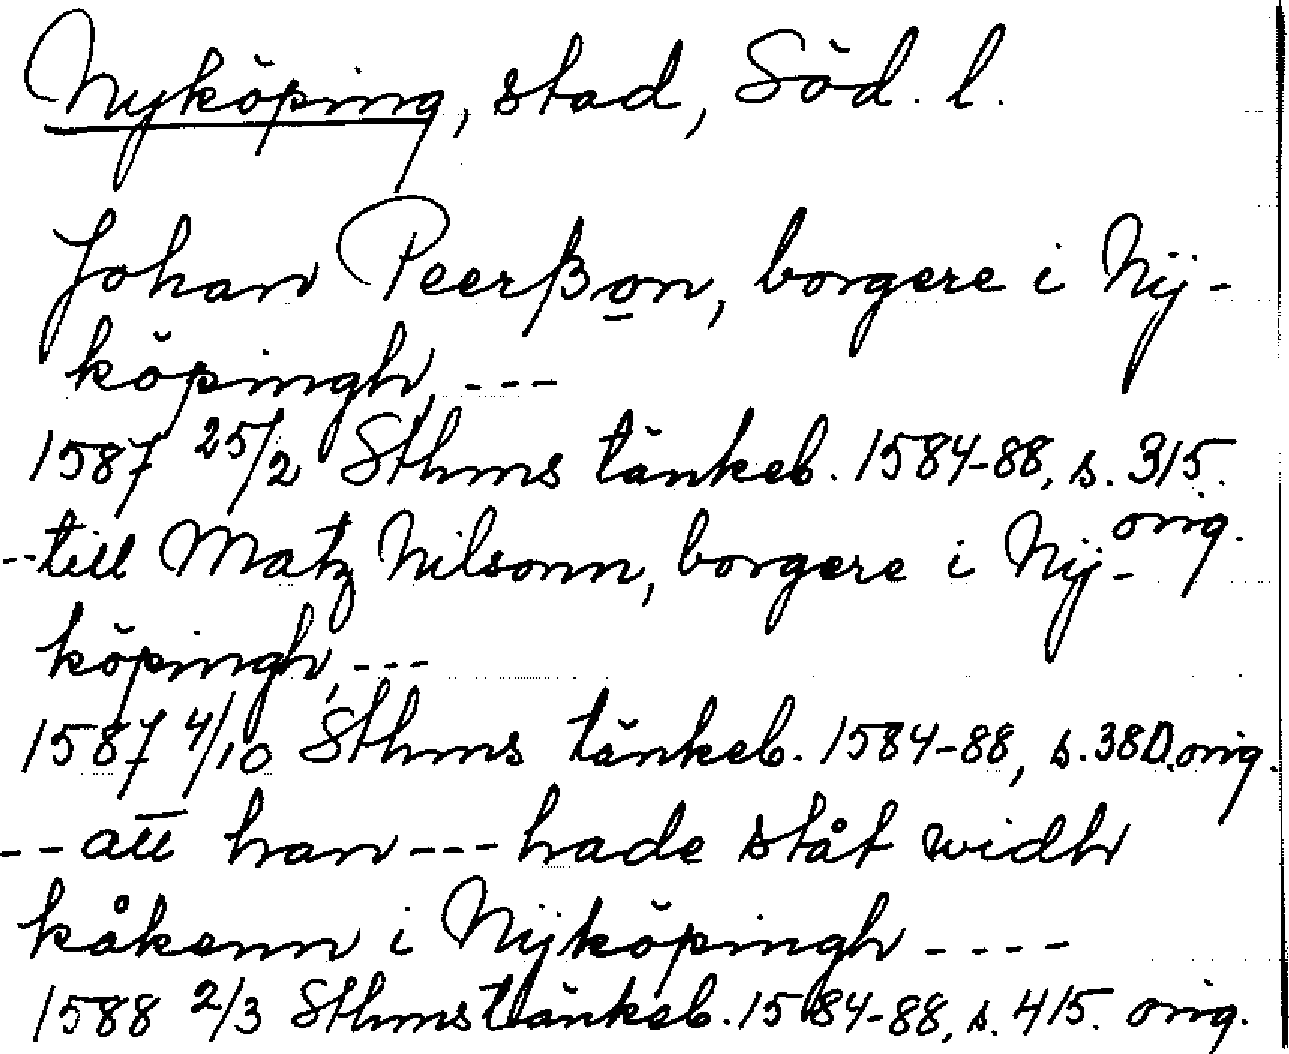 Nyköping, stad, Söd. l.
Johan Peerßon, borgere i Nij-
köpingh, ---
1587 25/2 Sthms tänkeb. 1584-88, s. 315.
orig.
--till Matz Nilsonn, borgere i Nij-
köpingh, ---
1587 4/10 Sthms tänkeb. 1584-88, s. 380. orig.
--att han --- hade ståt widh
kåkenn i Nijköpingh ----
1588 2/3 Sthms tänkeb. 1584-88, s. 415. orig.